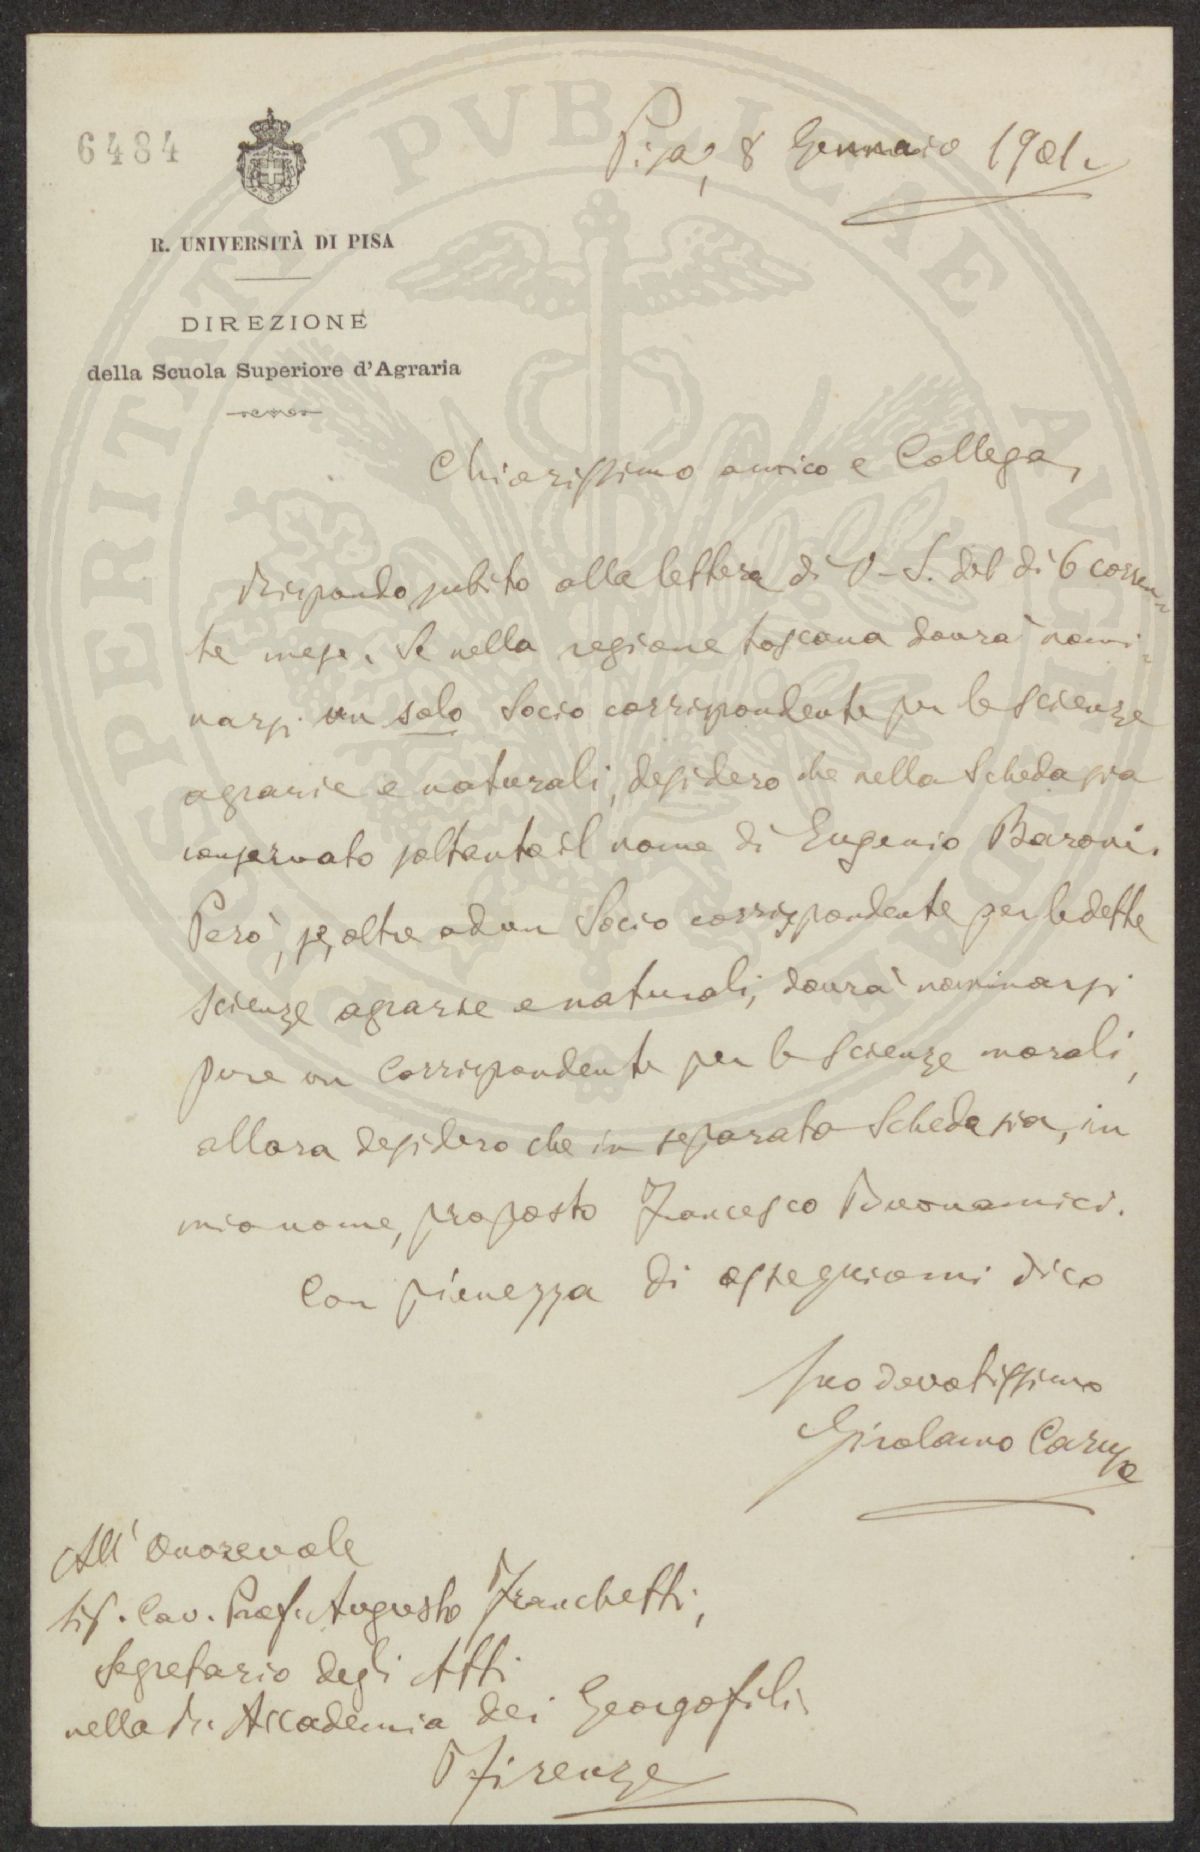 6484
Pisa, 8 Gennaio 1901.
R. UNIVERSITÀ DI PISA
DIREZIONE
della Scuola Superiore d'Agraria
Chiarissimo amico e Collega,
Rispondo subito alla lettera di V. S. del dì 6 corren-
te mese. Se nella regione toscana dovrà nomi-
narsi un solo Socio corrispondente per le scienze
agrarie e naturali, desidero che nella Scheda sia
conservato soltanto il nome di Eugenio Baroni.
Però, se, oltre ad un Socio corrispondente per le dette
scienze agrarie e naturali, dovrà nominarsi
pure un Corrispondente per le Scienze morali,
allora desidero che in separata Scheda sia, in
mio nome, proposto Francesco Buonamici.
Con pienezza di ossequi mi dico
Suo devotissimo
Girolamo Caruso
All' Onorevole
Sig. Cav. Prof. Augusto Franchetti,
Segretario degli Atti
nella R. Accademia dei Georgofili
Firenze
PROSPERITATI PVBLICAE AVGENDAE